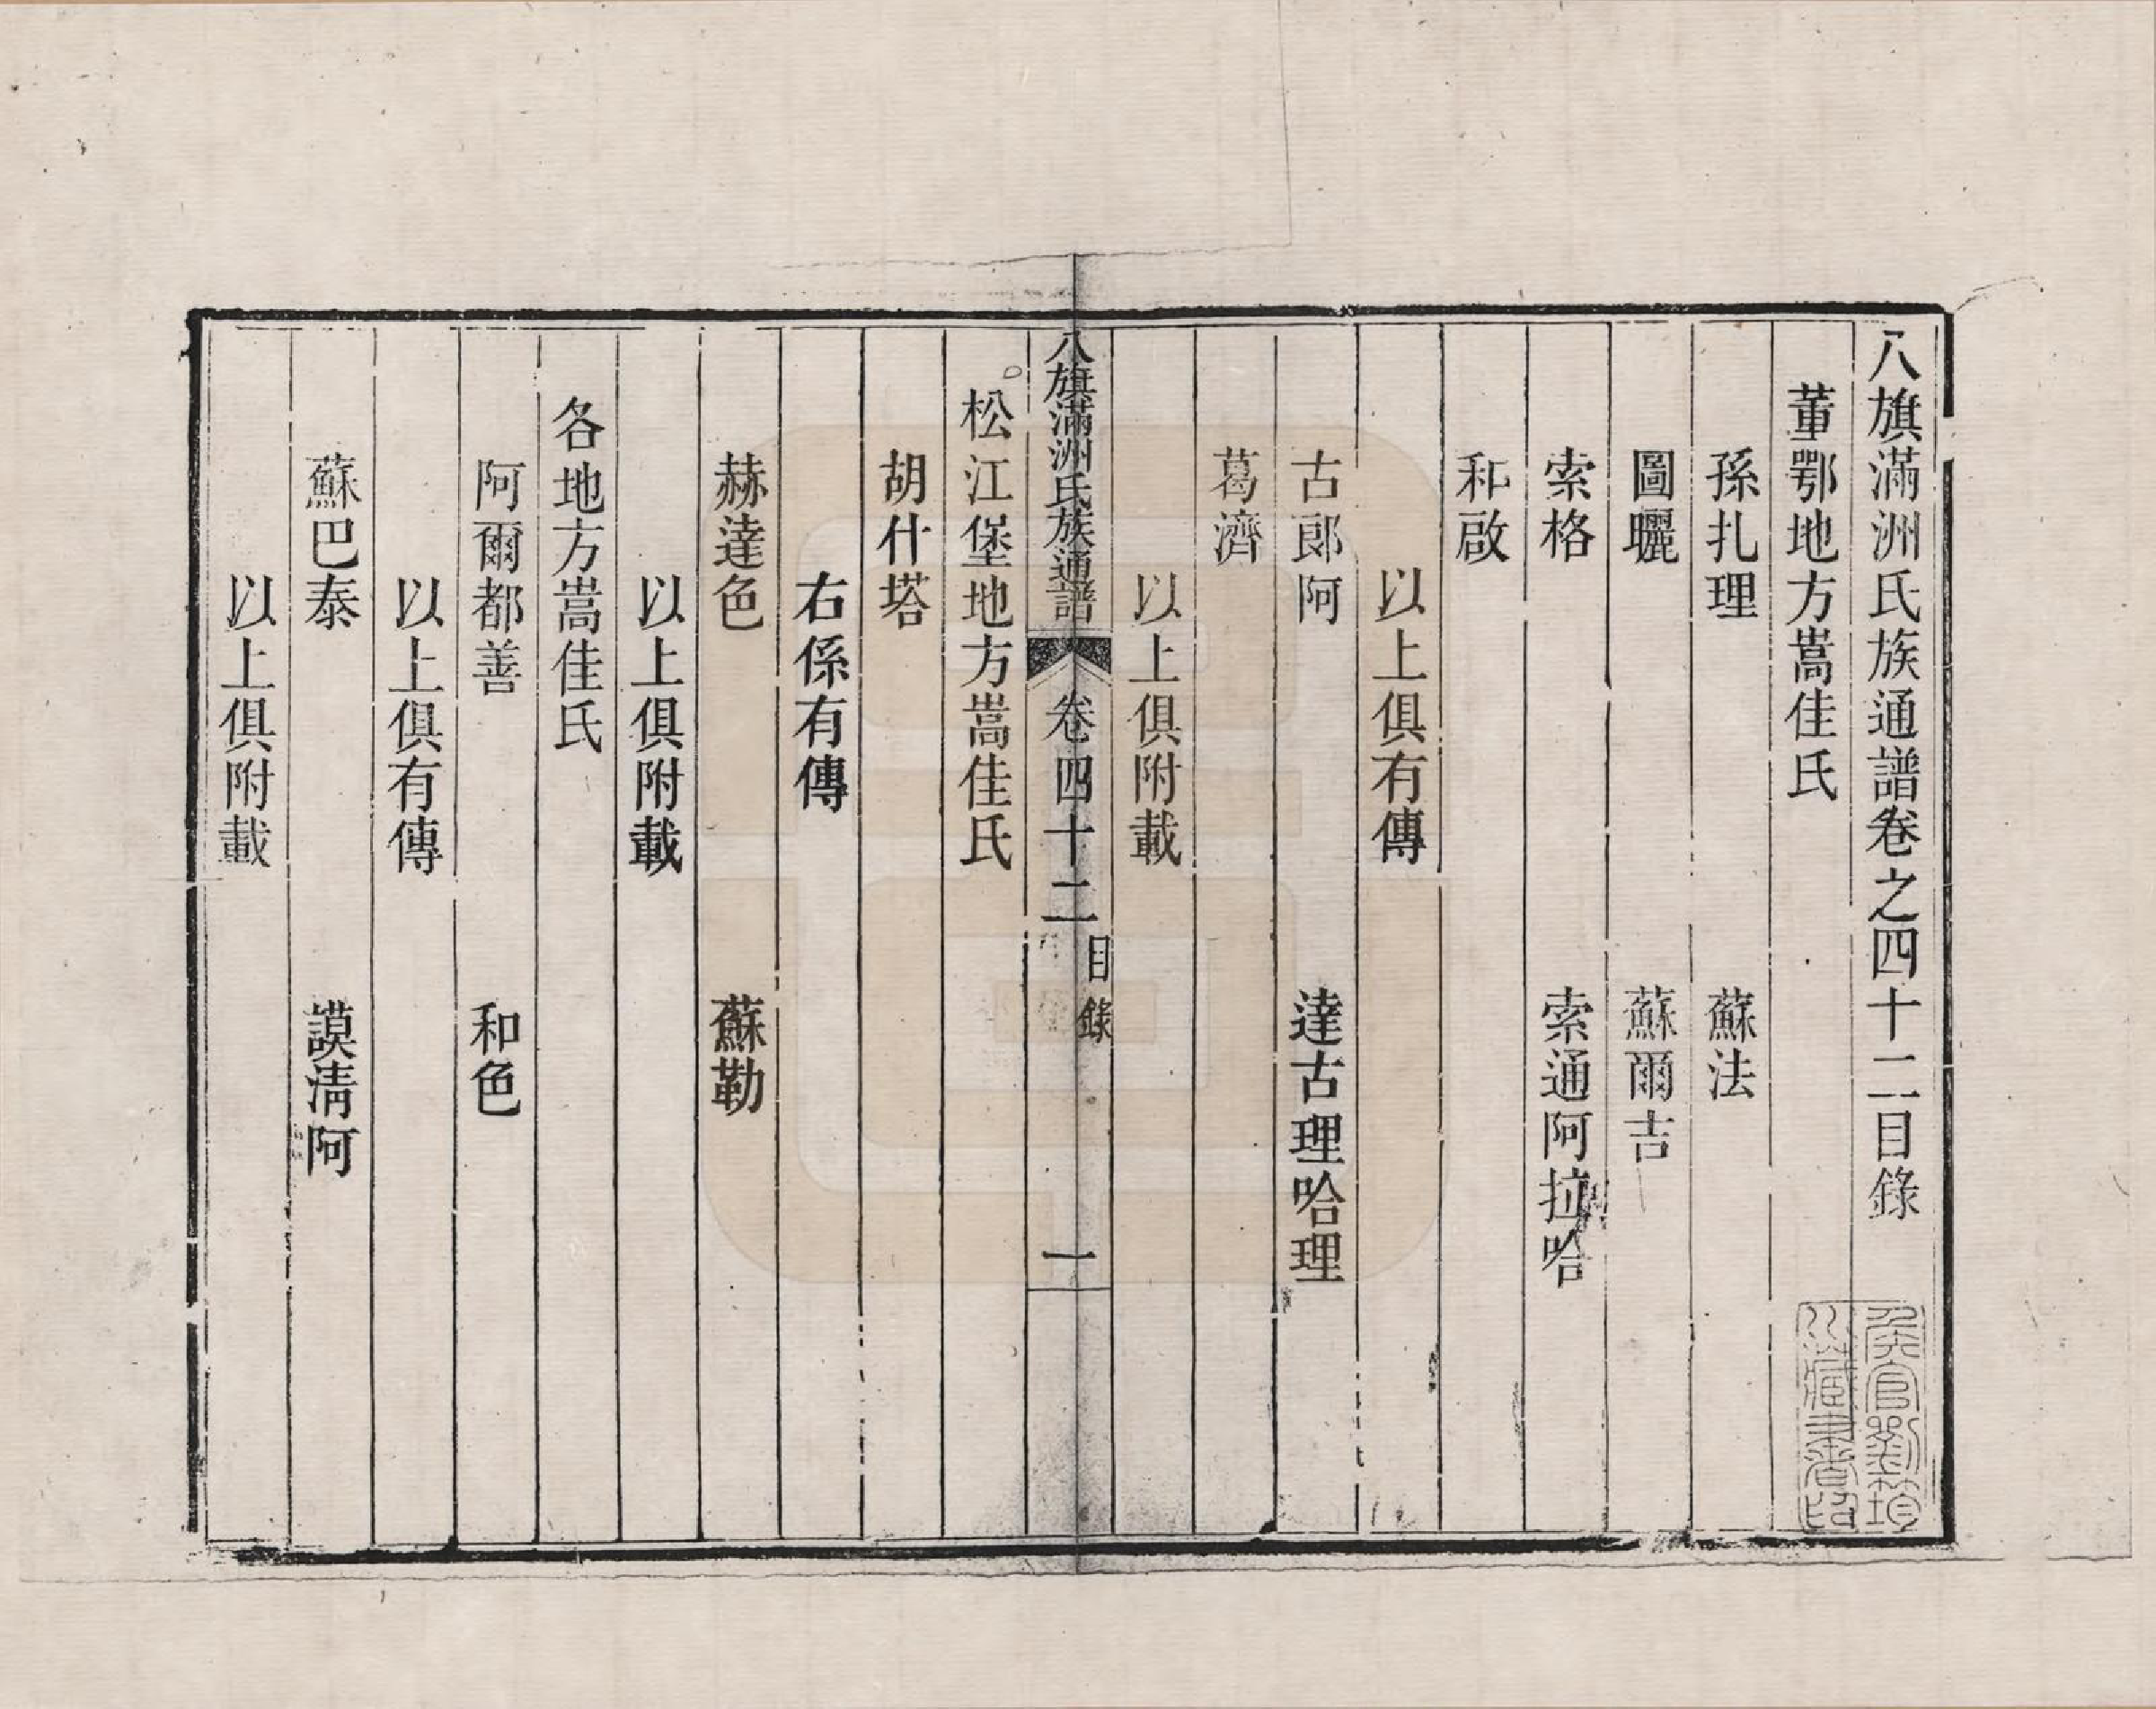 八旗滿洲氏族通譜卷之四十二目錄
董鄂地方嵩佳氏
孫扎理 蘇法
圖曬 蘇爾吉
索格 索通阿拉哈
和啟
以上俱有傳
古郎阿 達古理哈理
葛濟
以上俱附載
八旗滿洲氏族通譜 卷四十二 目錄 一
松江堡地方嵩佳氏
胡什塔
右係有傳
赫達色 蘇勒
以上俱附載
各地方嵩佳氏
阿爾都善 和色
以上俱有傳
蘇巴泰 謨淸阿
以上俱附載
侯官劉筠
川藏書畵印